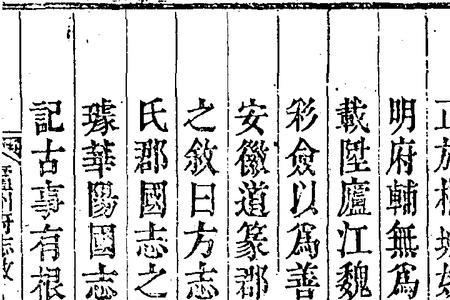 明府輔無爲
載陞廬江魏
彩僉以爲善
安徽道篆郡
之敘曰方志
氏郡國志之
璩華陽國志
記古事有根
州府志